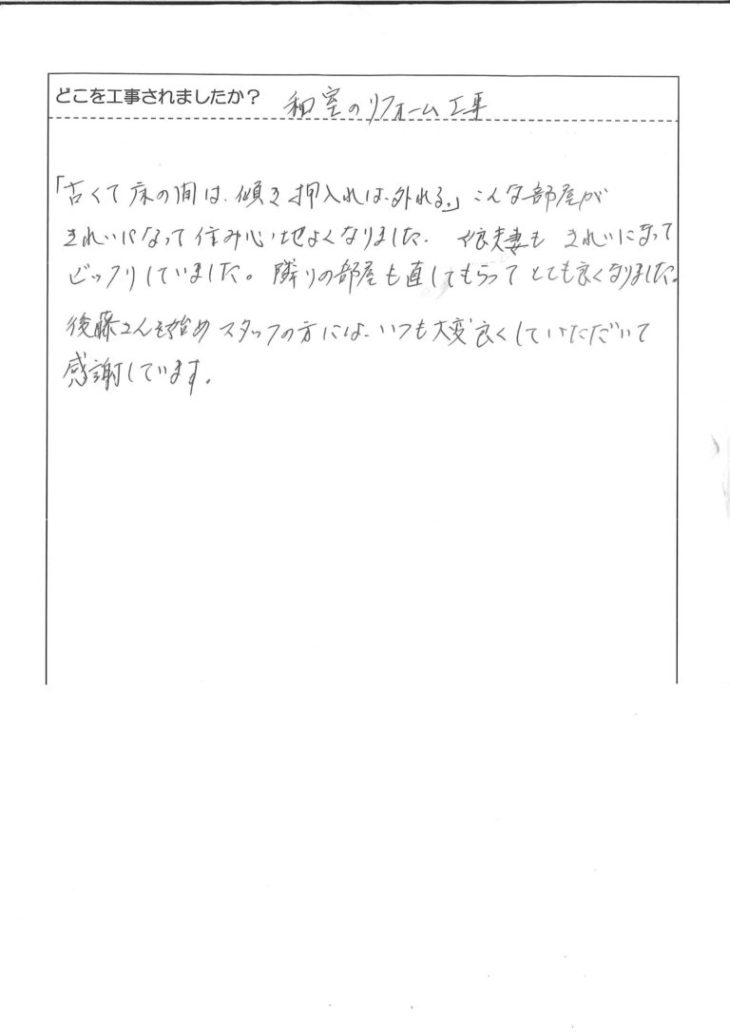 どこを工事されましたか? 和室のリフォーム工事
「古くて床の間は、傾き押入れは、外れる。」こんな部屋が
きれいになって住み心地よくなりました。娘夫妻も きれいになって
ビックリしていました。隣りの部屋も直してもらってとても良くなりました。
後藤さんを始めスタッフの方には、いつも大変良くしていただいて
感謝しています。